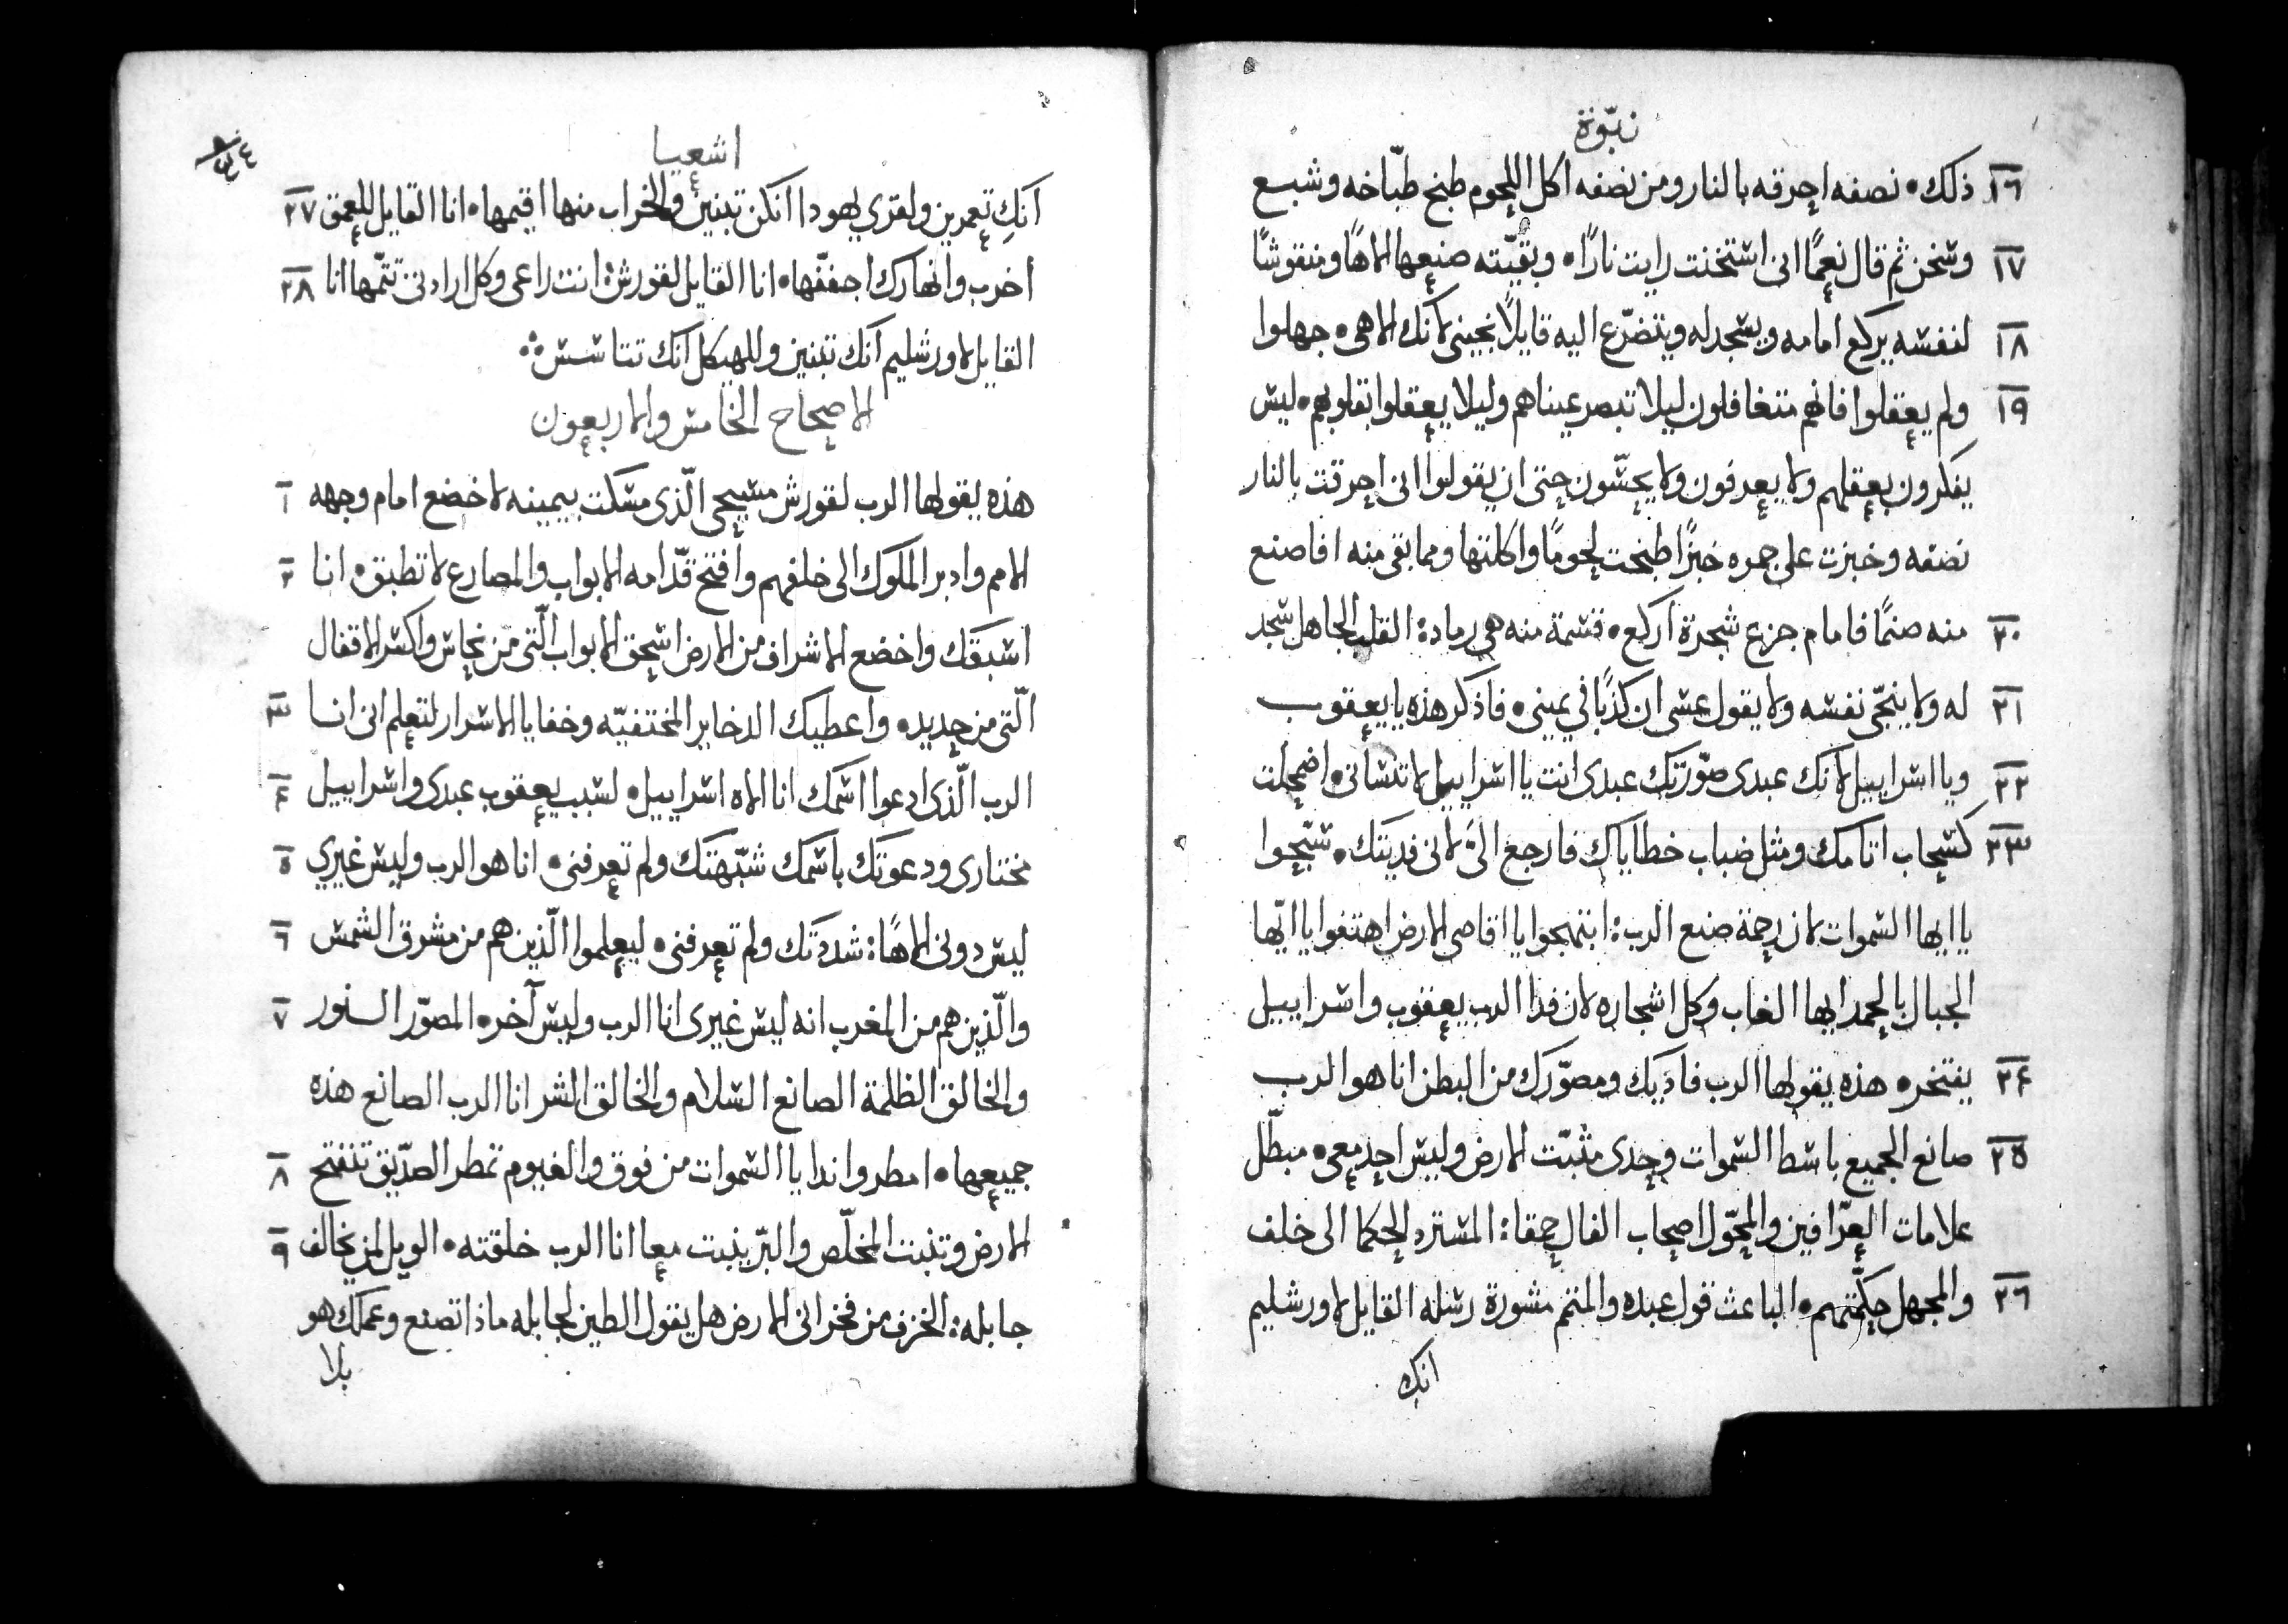 نبّوة
١٦ ذلك • نصفه احرقه بالنار ومن نصفه اكل اللحوم طبخ طبّاخه وشبع
١٧ وسخن ثم قال نعمًا انى استخنت رايت نارًا • وبقيّته صنعها الاهًا ومنقوشًا
١٨ لنفسه يركع امامه ويسجد له ويتضرّع اليه قايلاً نجينى لانك الاهى • جهلوا
١٩ ولم يعقلوا فانهم متغافلون ليلا تبصر عيناهم وليلا يعقلوا بقلوبهم • ليس
يفكرون بعقلهم ولا يعرفون ولا يحسّون حتى ان يقولوا انى احرقت بالنار
نصفه وخبزت على جمره خبزًا طبخت لحومًا واكلتها ومما بقى منه افاصنع
٢٠ منه صنمًا فامام جزع شجرة اركع • قسمة منه هى رماد: القلب الجاهل سجد
٢١ له ولا ينجّى نفسه ولا يقول عسى ان كذبًا فى يمينى • فاذكر هذه يا يعقوب
٢٢ ويا اسراييل لانك عبدى صوّرتك عبدى انت يا اسراييل لا تنسانى • اضمحلت
٢٣ كسحاب اثامك ومثل ضباب خطاياك فارجع الىّ لانى فديتك • سبّحوا
يا ايها السموات لان رحمة صنع الرب: ابتهجوا يا اقاصى الارض اهتفوا يا ايّها
الجبال بالحمد ايها الغاب وكل اشجاره لان فدا الرب يعقوب واسراييل
٢٤ يفتخر • هذه يقولها الرب فاديك ومصوّرك من البطن انا هو الرب
٢٥ صانع الجميع باسط السموات وحدى مثبّت الارض وليس احد معى • مبطّل
علامات العرّافين والمحوّل اصحاب الفال حمقا: المسترد الحكما الى خلف
٢٦ والمجهل حكمتهم • الباعث قول عبده والمتمم مشورة رسله القايل لاورشليم
انكِ
اشعيا
انكِ تعمرين ولقرى يهودا انكن تبنين والخراب منها اقيمها • انا القايل للعمق ٢٧
اخرب وانهارك اجففّها • انا القايل لقورش: انت راعى وكل ارادتى تتمّها انا ٢٨
القايل لاورشليم انك تبنين وللهيكل انك تتاسس ∴
الاصحاح الخامس والاربعون
هذه يقولها الرب لقورش مسيحى الّذى مسكت بيمينه لاخضع امام وجهه ١
الامم وادبر الملوك الى خلفهم وافتح قدّامه الابواب والمصارع لا تطبق • انا ٢
اسبقك واخضع الاشراف من الارض اسحق الابواب الّتى من نحاس واكسر الاقفال
الّتى من حديد • واعطيك الدخاير المختفيّه وخفايا الاسرار لتعلم انى انا ٣
الرب الّذى ادعوا اسمك انا الاه اسراييل • لسبب يعقوب عبدى واسراييل ٤
مختارى ودعوتك باسمك شبّهتك ولم تعرفنى • انا هو الرب وليس غيرى ٥
ليس دونى الاهًا: شددتك ولم تعرفنى • ليعلموا الّذين هم من مشرق الشمس ٦
والّذين هم من المغرب انه ليس غيرى انا الرب وليس آخر • المصوّر النور ٧
والخالق الظلمة الصانع السلام والخالق الشر انا الرب الصانع هذه
جميعها • امطروا ندا يا السموات من فوق والغيوم تمطر الصدّيق تنفتح ٨
الارض وتنبت المخلّص والبرّ ينبت معا انا الرب خلقته • الويل لمن يخالف ٩
جابله: الخزف من فخرانى الارض هل يقول الطين لجابله ماذا تصنع وعملك هو
بلا